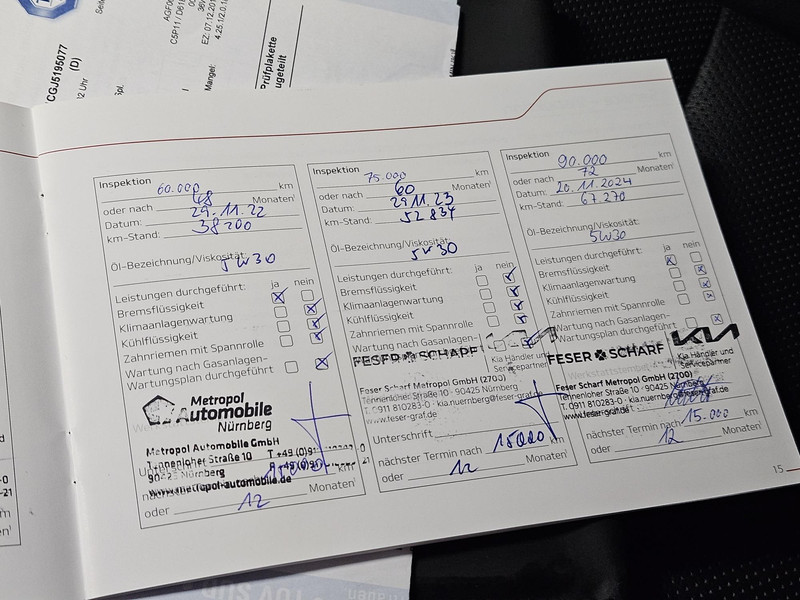 CGJ5195077
(D)
2 Uhr
C5P11
EZ: 07.12.201
Mangel:
Prüfplakette
ugeteilt
Inspektion 60.000 km
oder nach 48 Monaten¹
Datum: 29.11.22
km-Stand: 38200
Öl-Bezeichnung/Viskosität: 5W30
Leistungen durchgeführt: ja nein
Bremsflüssigkeit
Klimaanlagenwartung
Kühlflüssigkeit
Zahnriemen mit Spannrolle
Wartung nach Gasanlagen-
Wartungsplan durchgeführt
Metropol
Automobile
Nürnberg
Metropol Automobile GmbH
Tennenloher Straße 10
Nürnberg
www.metropol-automobile.de
oder 12 Monaten¹
Inspektion 75.000 km
oder nach 60 Monaten¹
Datum: 29 11.23
km-Stand: 52 834
Öl-Bezeichnung/Viskosität: 5W30
Leistungen durchgeführt: ja nein
Bremsflüssigkeit
Klimaanlagenwartung
Kühlflüssigkeit
Zahnriemen mit Spannrolle
Wartung nach Gasanlagen-
FESER SCHARF
Kia Händler und
Servicepartner
Feser Scharf Metropol GmbH (2700)
Tennenloher Straße 10 · 90425 Nürnberg
T. 0911 810283-0 · kia.nuernberg@feser-graf.de
www.feser-graf.de
Unterschrift
nächster Termin nach 15000 km
oder 12 Monaten¹
Inspektion 90.000 km
oder nach 72 Monaten¹
Datum: 20.11.2024
km-Stand: 67 270
Öl-Bezeichnung/Viskosität:
5W30
Leistungen durchgeführt: ja nein
Bremsflüssigkeit
Klimaanlagenwartung
Kühlflüssigkeit
Zahnriemen mit Spannrolle
Wartung nach Gasanlagen-
Wartungsplan durchgeführt
KIA
FESER SCHARF
Kia Händler und
Servicepartner
Feser Scharf Metropol GmbH (2700)
Tennenloher Straße 10 · 90425 Nürnberg
T. 0911 810283-0 · kia.nuernberg@feser-graf.de
www.feser-graf.de
nächster Termin nach 15.000 km
oder 12 Monaten¹
15